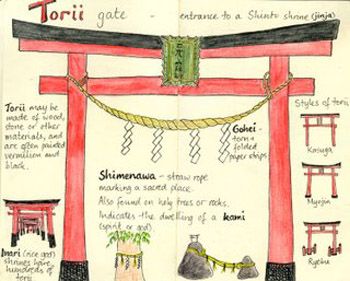 Torii gate - entrance to a Shinto shrine (jinja)
Torii may be
made of wood,
stone or other
materials, and
are often painted
vermilion and
black.
Gohei -
torn +
folded
paper strips
Styles of torii
Kasuga
Myojin
Ryobu
Shimenawa - straw rope
marking a sacred place.
Also found on holy trees or rocks.
Indicates the dwelling of a kami
(spirit or god)
Inari (rice god)
shrines have
hundreds of
torii